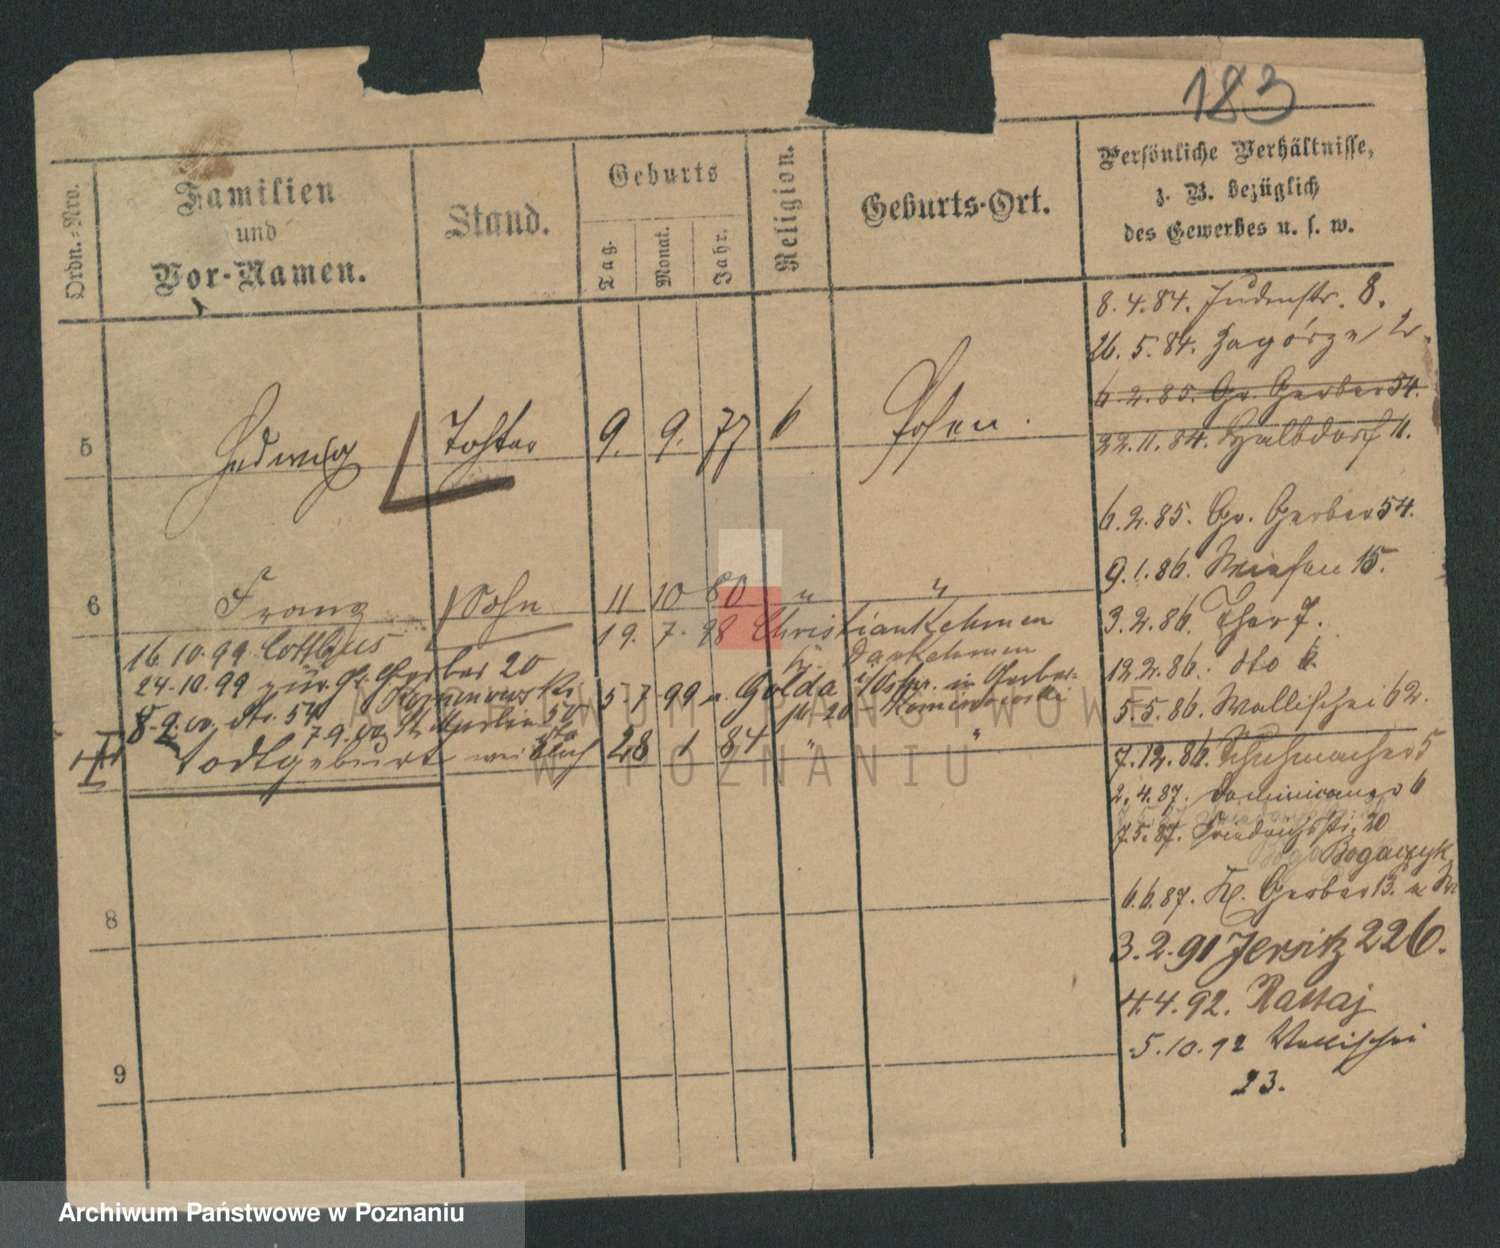 183
Ordn.-Nro.
Familien
und
Vor-Namen.
Stand.
Geburts
Tag.
Monat.
Jahr.
Religion.
Geburts-Ort.
Persönliche Verhältnisse,
z. B. bezüglich
des Gewerbes u. s. w.
8.4.84. Judenstr. 8.
26.5.84. Zagórze 2.
6.2.85. Gr. Gerber 54.
22.11.84. Halbdorf 11.
5 Hedwig Tochter 9. 9. 77 Posen.
6.2.85. Gr. Gerber 54.
9.1.86. Wiesen 15.
6 Franz Sohn 11 10 80 " "
3.2.86. Thor 7.
16.10.99 Cottbus 19. 7. 98 Christiankehmen
Darkehmen
12.2.86. dto 6.
24.10.99 zur. Gr. Gerber 20
5.7.99 n. Golda
5.5.86. Wallischei 62.
8.2.00. dto. 54
7.9.00
Todtgeburt weiblich 28 1 84 " "
7.12.86. Schuhmacher 5
2.4.87. Dominicaner 6
7.5.87. Friedrichsstr. 20
Bogaczyk
6.6.87. Kl. Gerber 13.
8
3.2.91 Jersitz 226.
4.4.92. Rattaj
5.10.92 Wallischei
23.
9
ARCHIWUM PAŃSTWOWE
W POZNANIU
Archiwum Państwowe w Poznaniu